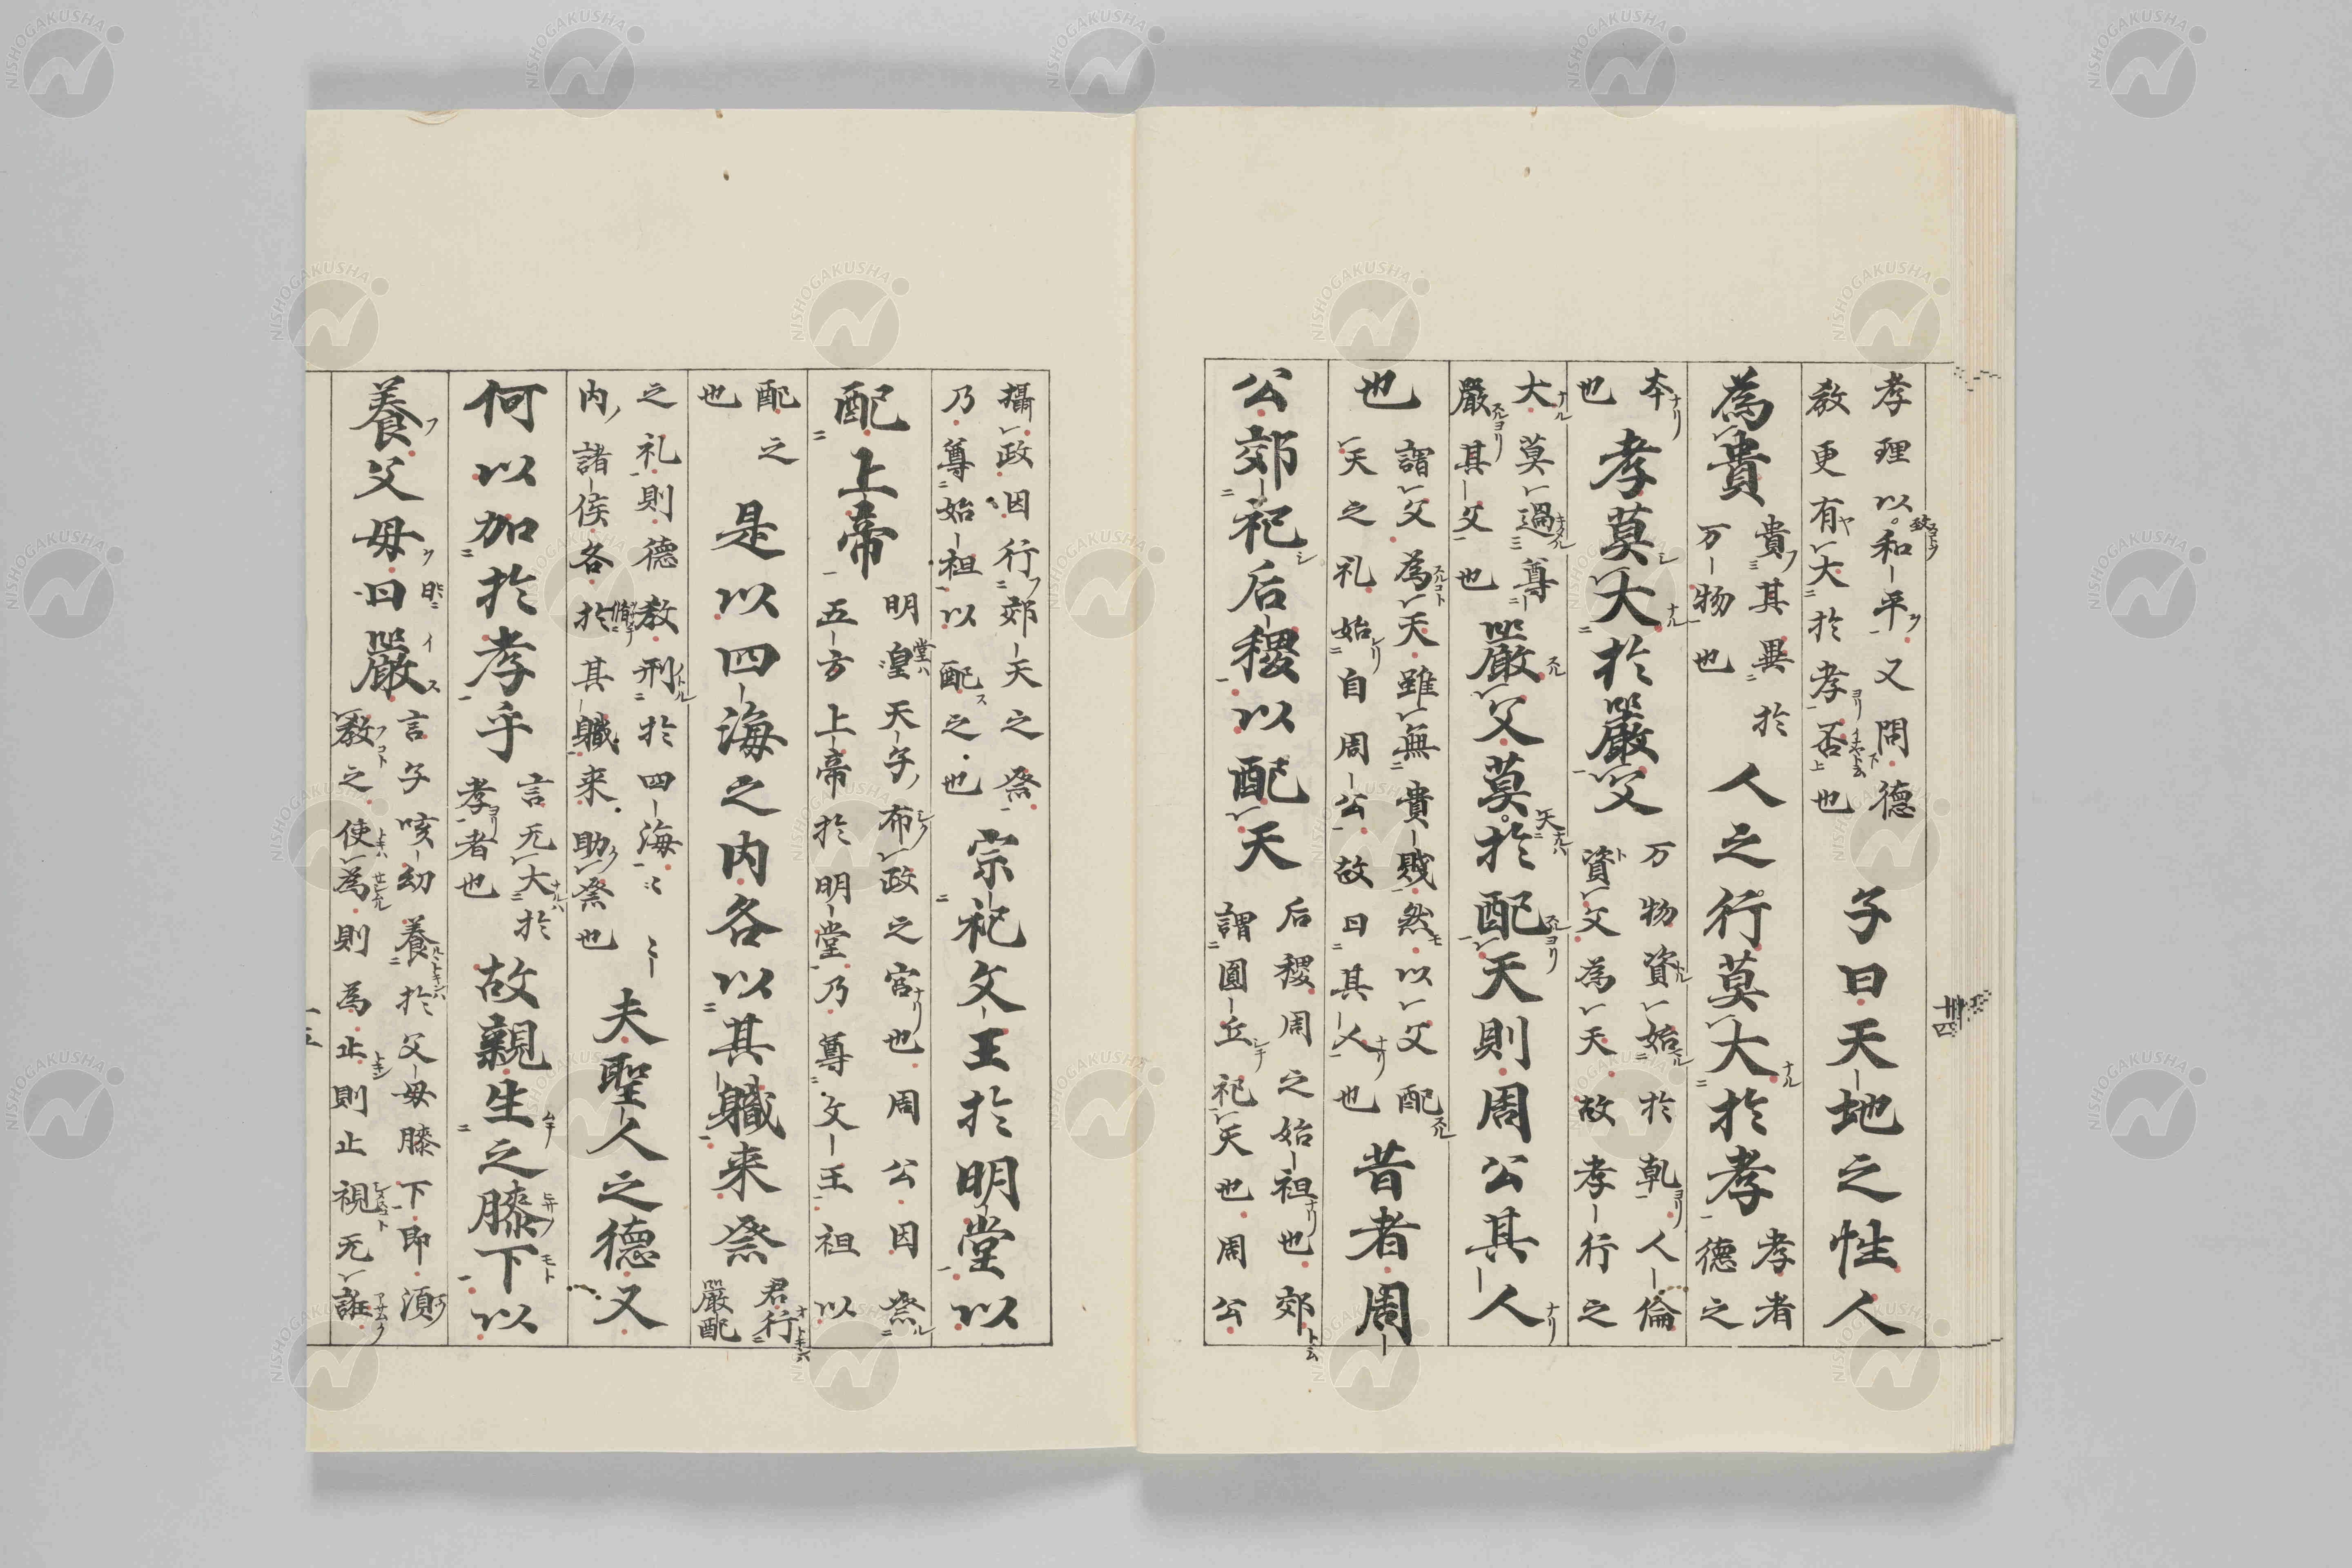 孝理以和平又問德
教更有大於孝否也
子曰天地之性人
為貴
貴其異於
万物也
人之行莫大於孝
孝者
德之
本
也
孝莫大於嚴父
万物資始於乹人倫
資父為天故孝行之
大莫過尊
嚴其父也
嚴父莫於配天則周公其人
也
謂父為天雖無貴賎然以父配
天之礼始自周公故曰其人也
昔者周
公郊祀后稷以配天
后稷周之始祖也郊
謂圓丘祀天也周公
攝政因行郊天之祭
乃尊始祖以配之也
宗祀文王於明堂以
配上帝
明堂天子布政之宮也周公因祭
五方上帝於明堂乃尊文王祖以
配之
也
是以四海之内各以其職来祭
君行
嚴配
之礼則德教刑於四海〻〻
内諸侯各於其職来助祭也
夫聖人之德又
何以加於孝乎
言无大於
孝者也
故親生之膝下以
養父母日嚴
言子咳幼養於父母膝下即湏
教之使為則為止則止視无誑
NISHOGAKUSHA